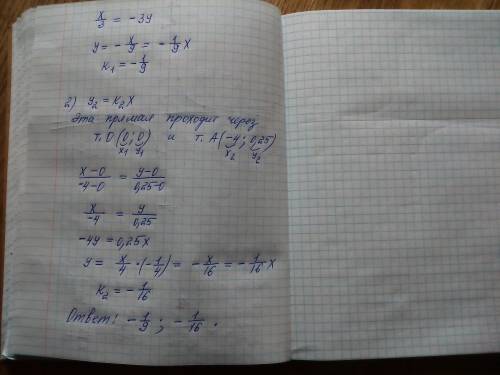 x/3 = -3y
y = - x/9 = - 1/9 x
к₁ = - 1/9
2) y₂ = к₂x
Эта прямая проходит через
т. О (0; 0) и т. А (-4; 0,25)
x₁ y₁ x₂ y₂
x-0/-4-0 = y-0/0,25-0
x/-4 = y/0,25
-4y = 0,25x
y = x/4 · (-1/4) = - x/16 = - 1/16 x
к₂ = - 1/16
Ответ: - 1/9 ; - 1/16 .